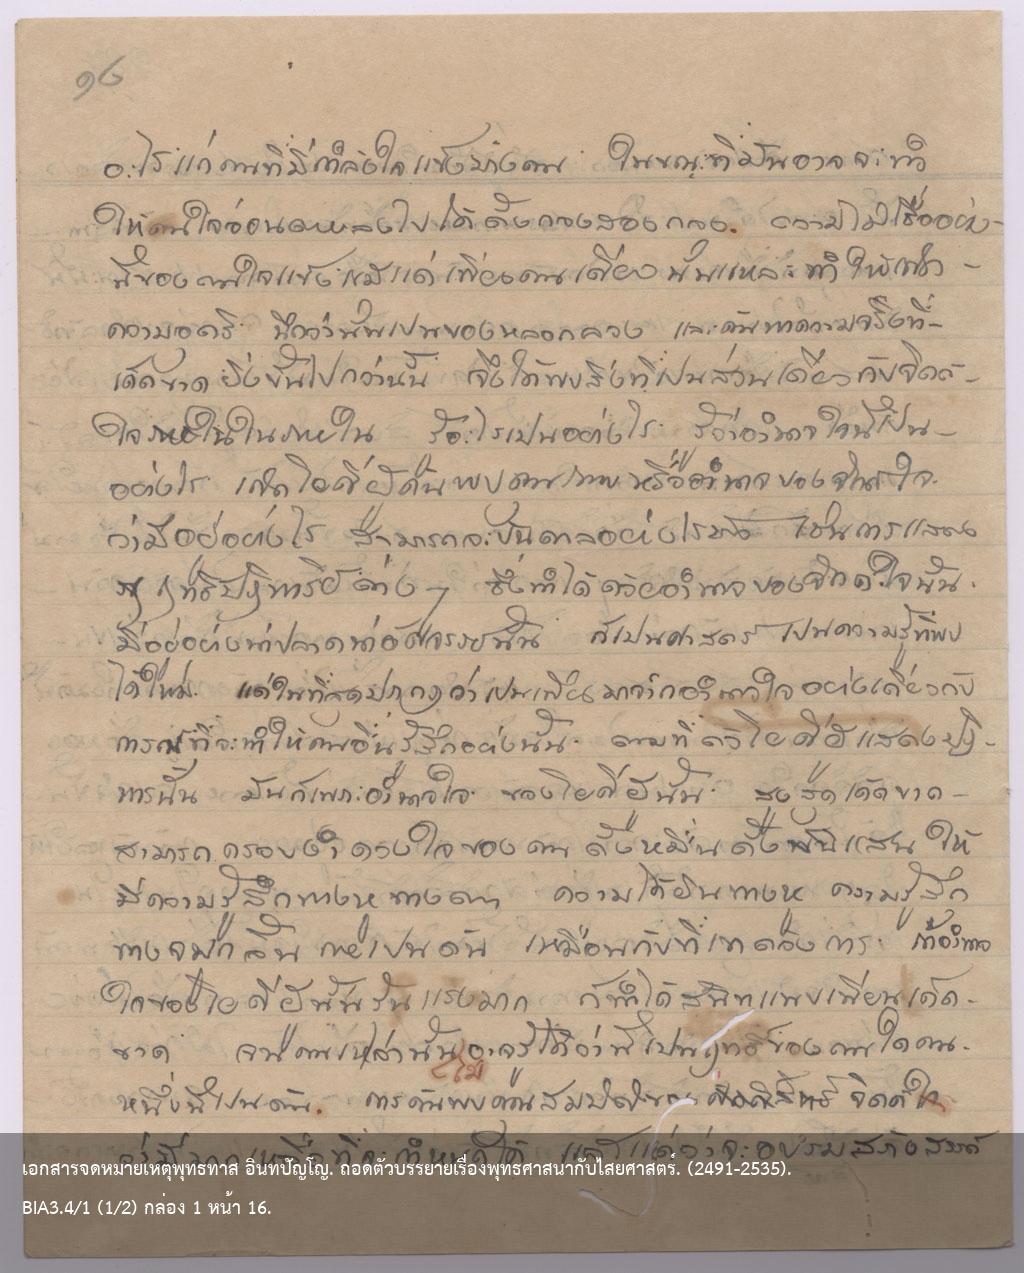 ๑๖
อะไรแก่คนที่มีกำลังใจแข็งบางคน ในขณะที่มันอาจจะทำ
ให้คนใจอ่อนหลงไปได้ตั้งกองสองกอง. ความไม่เชื่ออย่าง-
นี้ของคนใจแข็งแม้แต่เพียงคนเดียว นั่นแหละทำให้
ความอคติ นึกว่านั้นเป็นของหลอกลวง และค้นหาความจริงที่-
เด็ดขาดยิ่งขึ้นไปกว่านั้น จึงได้พบสิ่งที่เป็นส่วนเดียวกับจิตต์-
ใจ ในภายใน รู้อะไรเป็นอย่างไร รู้ว่าอำนาจใจนี้เป็น-
อย่างไร โยคีผู้ค้นพบ หรืออำนาจของจิตใจ
ว่ามีอยู่อย่างไร สามารถจะบันดาลอย่างไร เช่นการแสดง
ฤทธิ์ปาฏิหาริย์ต่าง ๆ ซึ่งทำได้ด้วยอำนาจของจิตต์ใจนั้น.
มีอยู่อย่างน่าปลาดน่าอัศจรรย์นั้น ก็เป็นศาสตร์ เป็นความรู้ที่พบ
ได้ใหม่. แต่ในที่สุดปรากฏว่าเป็นเพียงมาจากอำนาจใจ อย่างเดียวกับ
การณ์ที่จะทำให้คนอื่นรู้สึกอย่างนั้น. ตามที่ตัวโยคีผู้แสดงปาฏิ-
หารนั้น มันก็เพราะอำนาจใจ ของโยคีผู้นั้น สูงสุดเด็ดขาด-
สามารถครอบงำดวงใจของคน ตั้งหมื่นตั้งแสน ให้
มีความรู้สึกทางหูทางตา ความได้ยินทางหู ความรู้สึก
ทางจมูกลิ้น กายเป็นต้น เหมือนกับที่เขาต้องการ ถ้าอำนาจ
ใจของโยคีผู้นั้นรุนแรงมาก ก็ทำได้สนิทแนบเนียนเด็ด-
ขาด จนคนเหล่านั้นอาจรู้ได้ว่านี่เป็นฤทธิ์ของคนใดคน-
ไม่
หนึ่งนี้เป็นต้น. การค้นพบ จิตต์ใจ
แล้วแต่ว่าจะอบรม
เอกสารจดหมายเหตุพุทธทาส อินฺทปัญฺโญ. ถอดตัวบรรยายเรื่องพุทธศาสนากับไสยศาสตร์. (2491-2535).
BIA3.4/1 (1/2) กล่อง 1 หน้า 16.